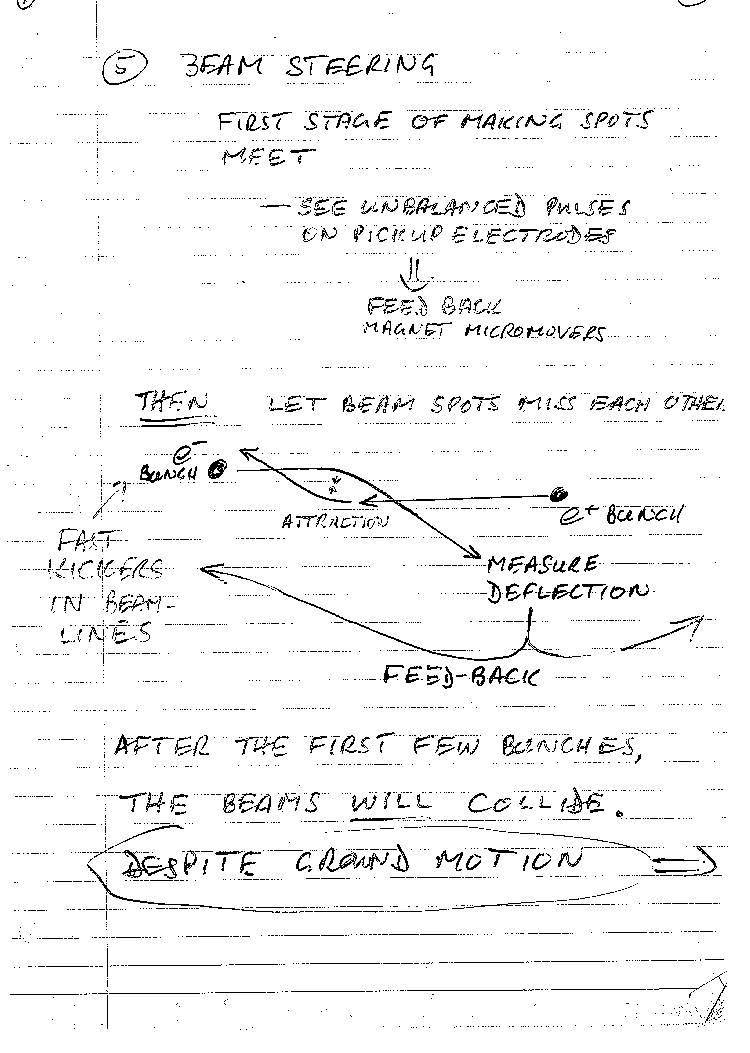 5 BEAM STEERING
FIRST STAGE OF MAKING SPOTS
MEET
— SEE UNBALANCED PULSES
ON PICKUP ELECTRODES
⇓
FEED BACK
MAGNET MICROMOVERS
THEN LET BEAM SPOTS MISS EACH OTHER
e-
BUNCH
ATTRACTION
e+ BUNCH
FAST
KICKERS
IN BEAM-
LINES
MEASURE
DEFLECTION
FEED-BACK
AFTER THE FIRST FEW BUNCHES,
THE BEAMS WILL COLLIDE.
DESPITE GROUND MOTION ⇒